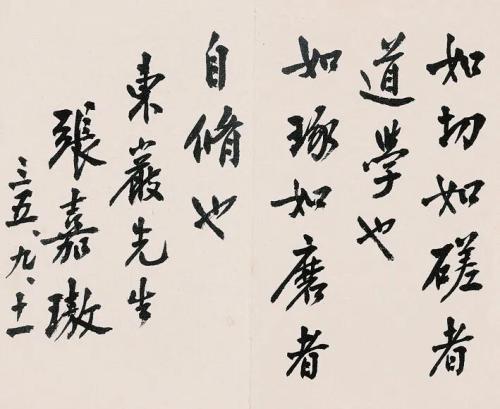 如切如磋者
道學也
如琢如磨者
自脩也
東巖先生
張嘉璈
三五、九、十一